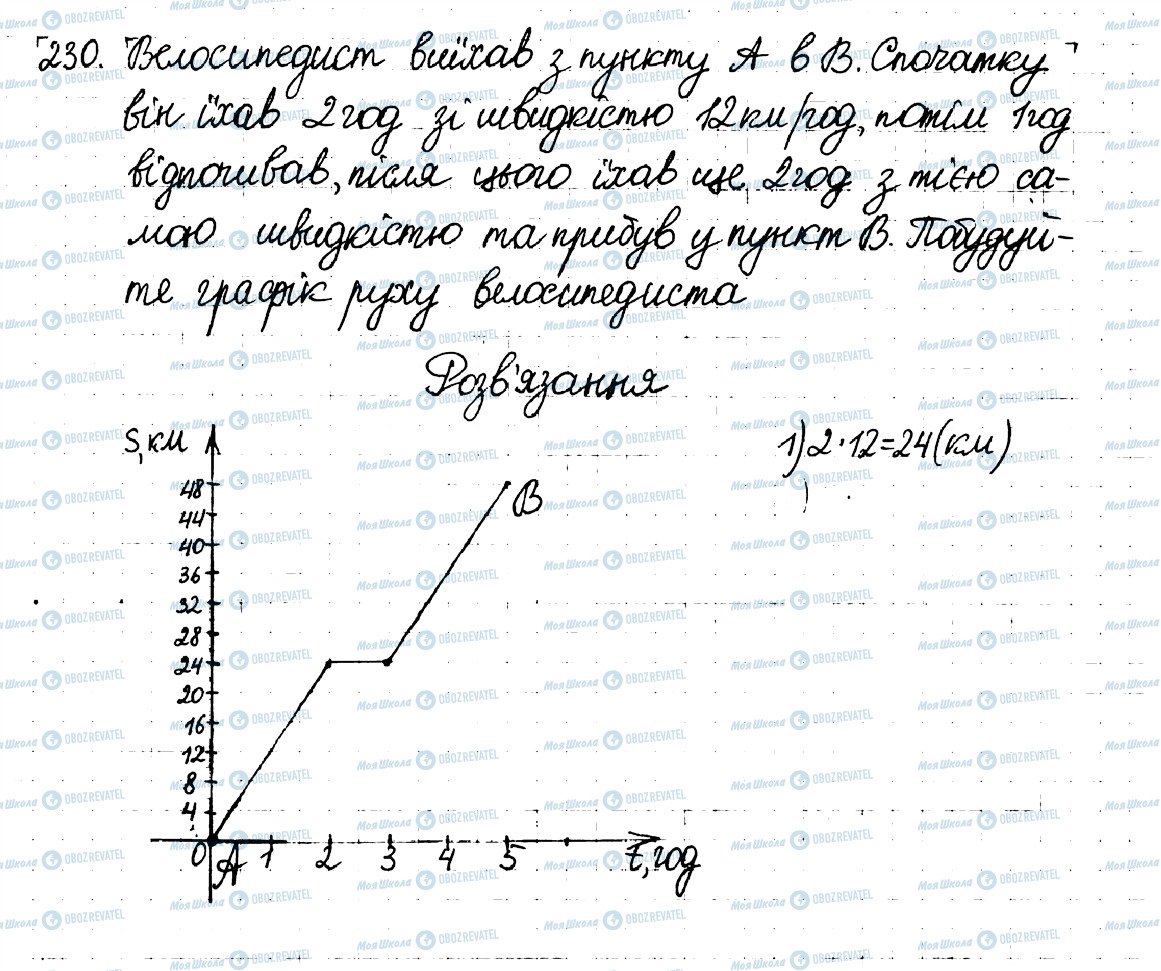 230. Велосипедист виїхав з пункту А в В. Спочатку
він їхав 2 год зі швидкістю 12 км/год, потім 1 год
відпочивав, після цього їхав ще 2 год з тією са-
мою швидкістю та прибув у пункт В. Побудуй-
те графік руху велосипедиста
Розв'язання
S, км
1) 2·12=24(км)
48
B
44
40
36
32
28
24
20
16
12
8
4
0
A
1
2
3
4
5
t, год
Моя Школа OBOZREVATEL